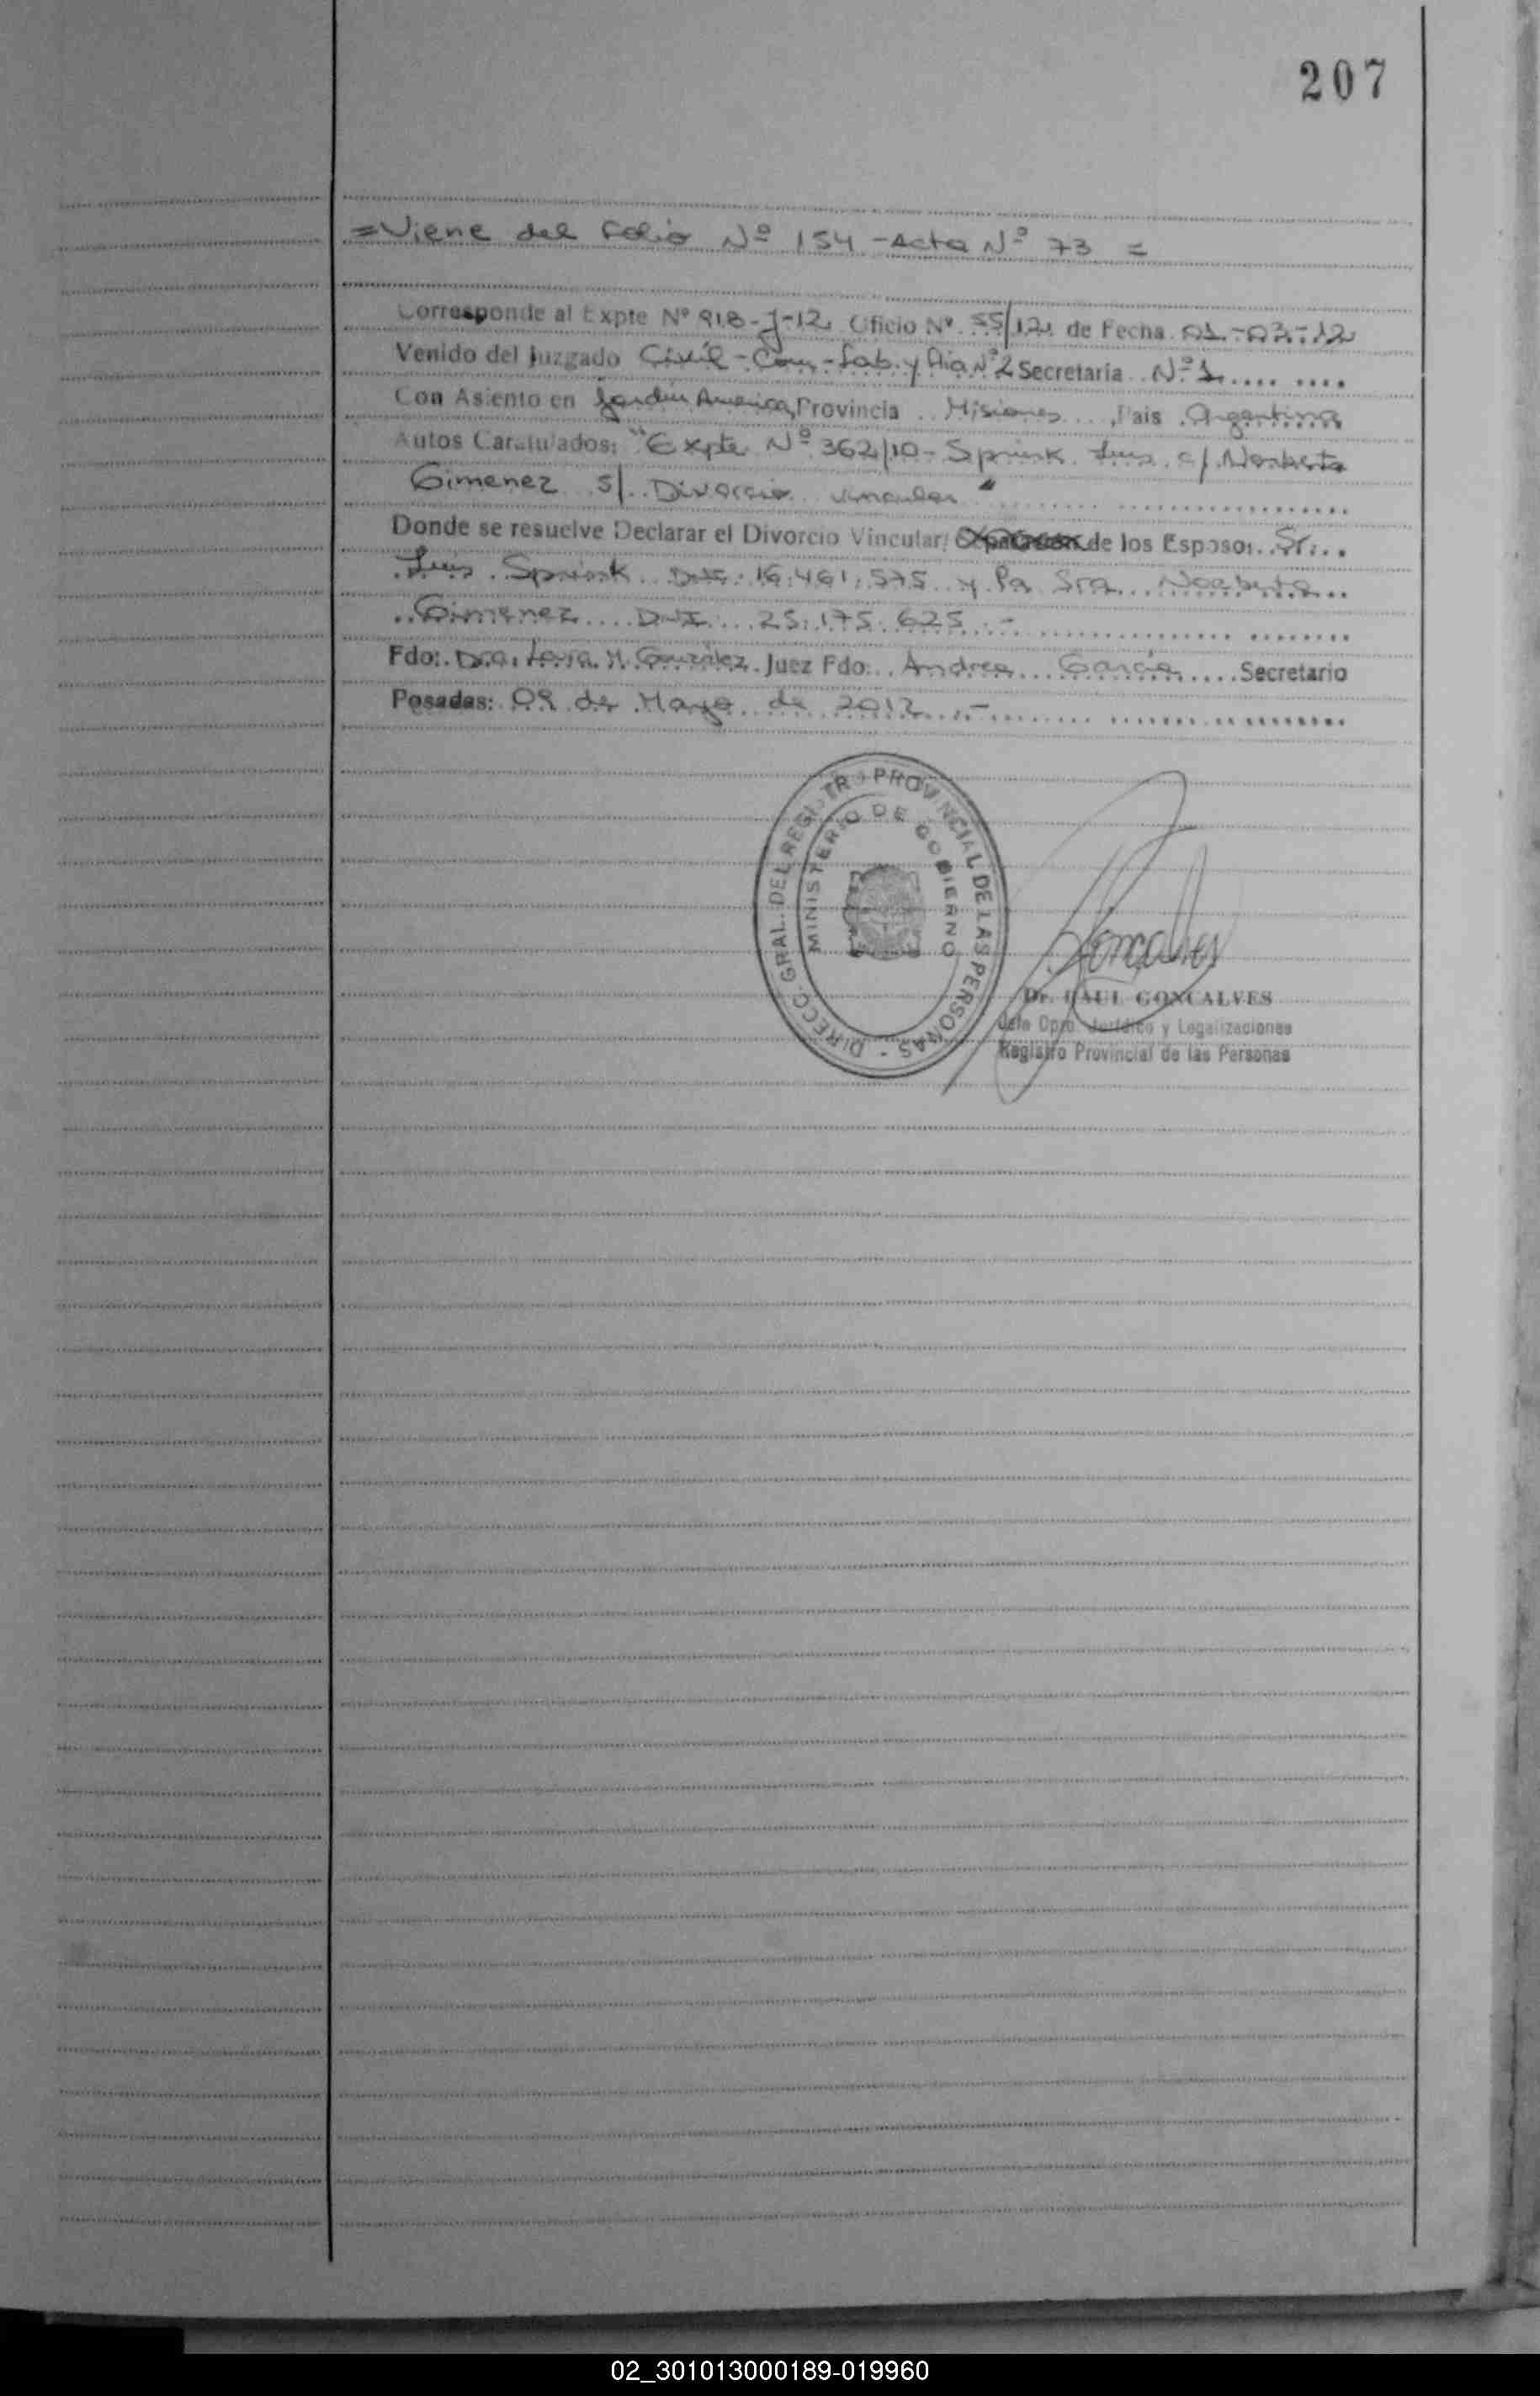 207
=Viene del Folio Nº 154 - Acta Nº 73 =
Corresponde al Expte Nº 918-J-12 Oficio Nº 55/12 de Fecha 01-03-12
Venido del Juzgado Civil - Com - Lab. y Flia Nº 2 Secretaria Nº 1
Con Asiento en Jardin America, Provincia Misiones, Pais Argentina
Autos Caratulados: "Expte Nº 362/10 - Luis c/ Norberta
Gimenez s/ Divorcio vincular"
Donde se resuelve Declarar el Divorcio Vincular, de los Esposos Sr.
Luis DNI: 16.461.575 y la Sra. Norberta
Gimenez DNI 25.175.625.-
Fdo: Dra. M. González Juez Fdo: Andrea García Secretario
Posadas: 09 de Mayo de 2012.-
DIRECC. GRAL. DEL REGISTRO PROVINCIAL DE LAS PERSONAS -
MINISTERIO DE GOBIERNO
Dr. RAUL GONCALVES
Jefe Dpto. Jurídico y Legalizaciones
Registro Provincial de las Personas
02_301013000189-019960